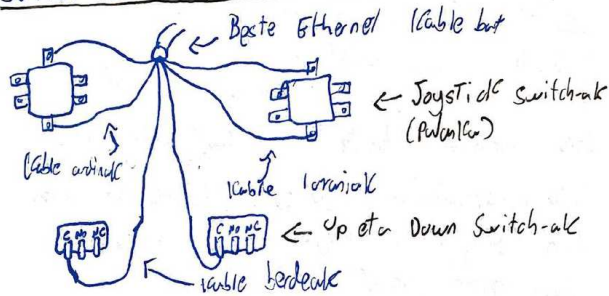 Beste Ethernet Kable bat
JoysTick Switch-ak
Kable
Kable laraniak
C NO NC
C NO NC
Up eta Down Switch-ak
Kable berdeak